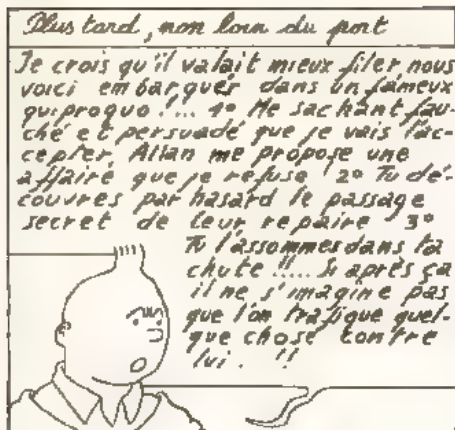 Plus tard, non loin du port
Je crois qu'il valait mieux filer nous
voici embarqués dans un fameux
quiproquo !... 1° Me sachant fau-
ché et persuadé que je vais l'ac-
cepter, Allan me propose une
affaire que je refuse 2° Tu dé-
couvres par hasard le passage
secret de leur repaire 3°
Tu l'assommes dans ta
chute !!.... Si après ça
il ne s'imagine pas
que l'on trafique quel-
que chose contre
lui. !!